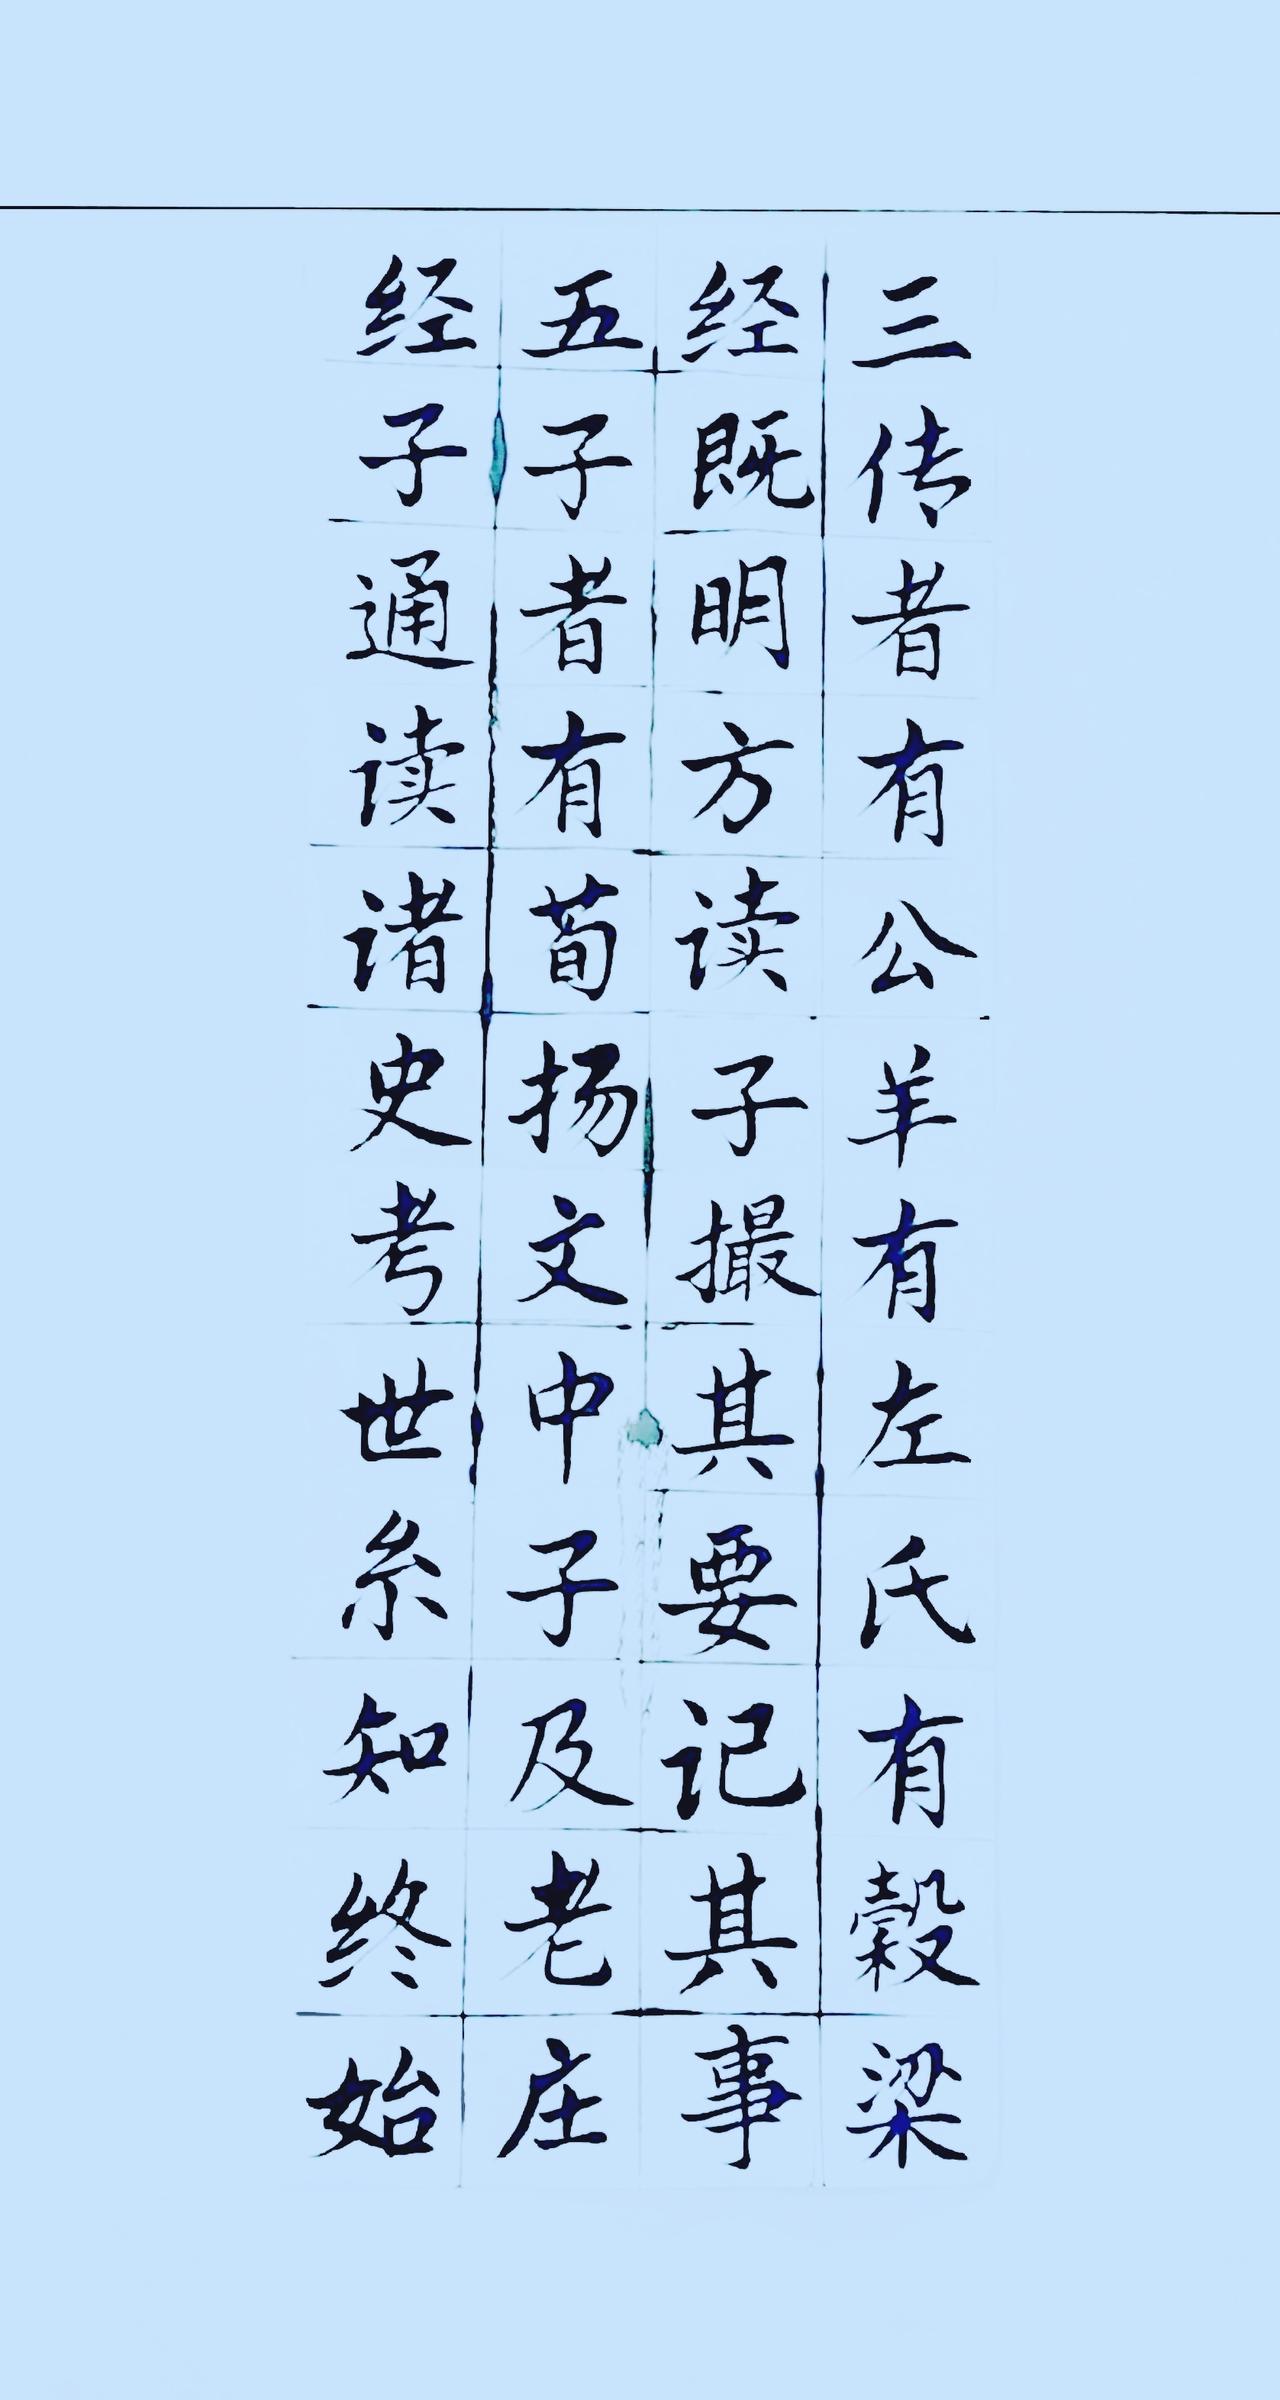 三传者有公羊有左氏有榖梁
经既明方读子撮其要记其事
五子者有荀扬文中子及老庄
经子通读诸史考世糸知终始